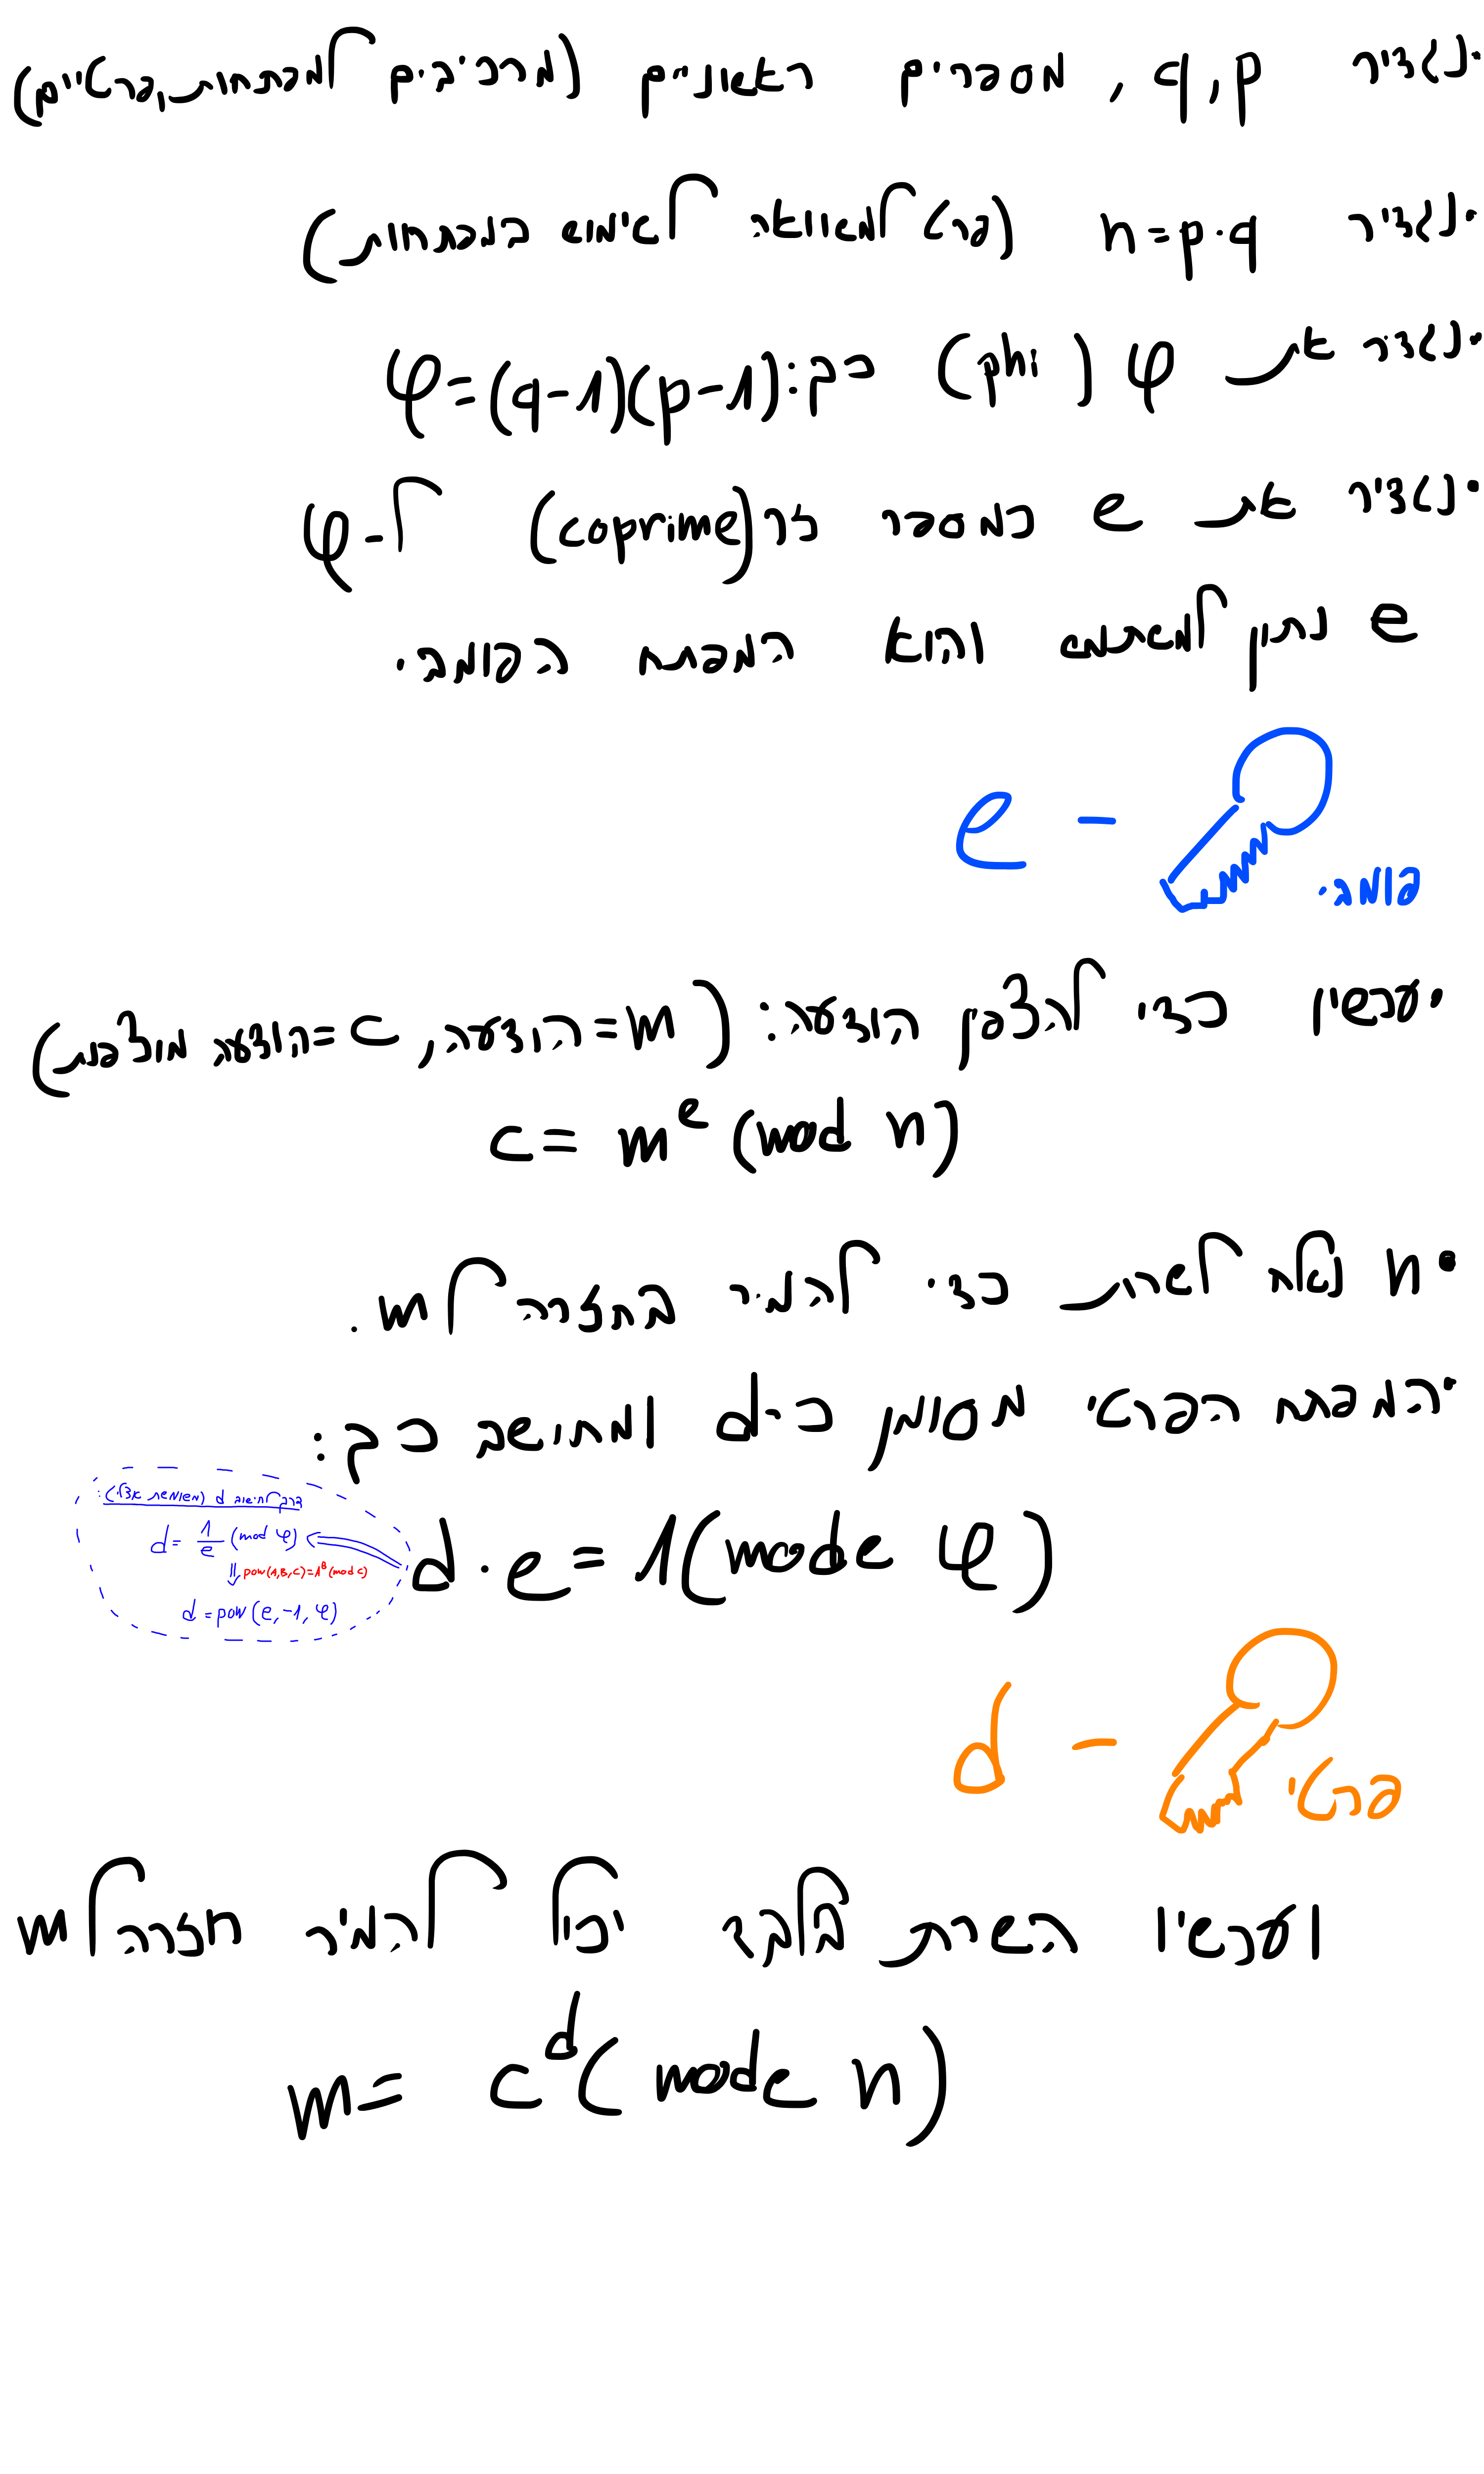 ·נגדיר q,p, מספרים ראשוניים (מרכיבים למפתחות, פרטיים)
·נגדיר n=p·q (כדי למשווא שימוש במפתחות)
·נגדיר את φ (phi) כך: φ=(q-1)(p-1)
·נגדיר את e כמספר זר (coprime) ל-φ
e ניתן לפרסום והוא המפתח הפומבי
e - פומבי
·עכשיו כדי להצפין הודעה: (m=הודעה, c=הודעה מוצפנת)
c = m^e (mod n)
·n נשלח לשרת כדי להמיר בחזרה ל m.
·המפתח הפרטי מסומן כ-d ומחושב כך:
d·e=1(mode φ)
דרך לחישוב d (שימושית אצלי):
d = 1/e (mod φ)
pow(A,B,C)=A^B (mod C)
d = pow(e,-1,φ)
d - פרטי
ועכשיו השרת יכול להמיר חזרה ל m
m = c^d (mode n)